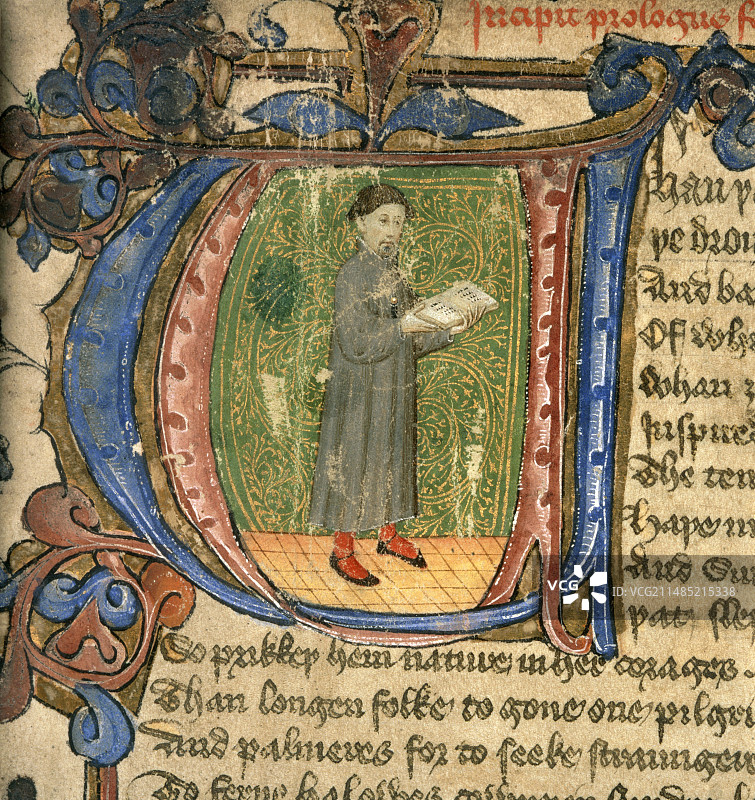 Incipit prologus f
Han þ
þe drou
And ba
Of whi
whan
Inspire
The ten
Haþe in
And Su
þat slep
So prikkeþ hem nature in her corages
Than longen folke to gone one pilgri
And palmeres for to seeke straunger
To ferne halowes
VCG
ID:VCG211485215338